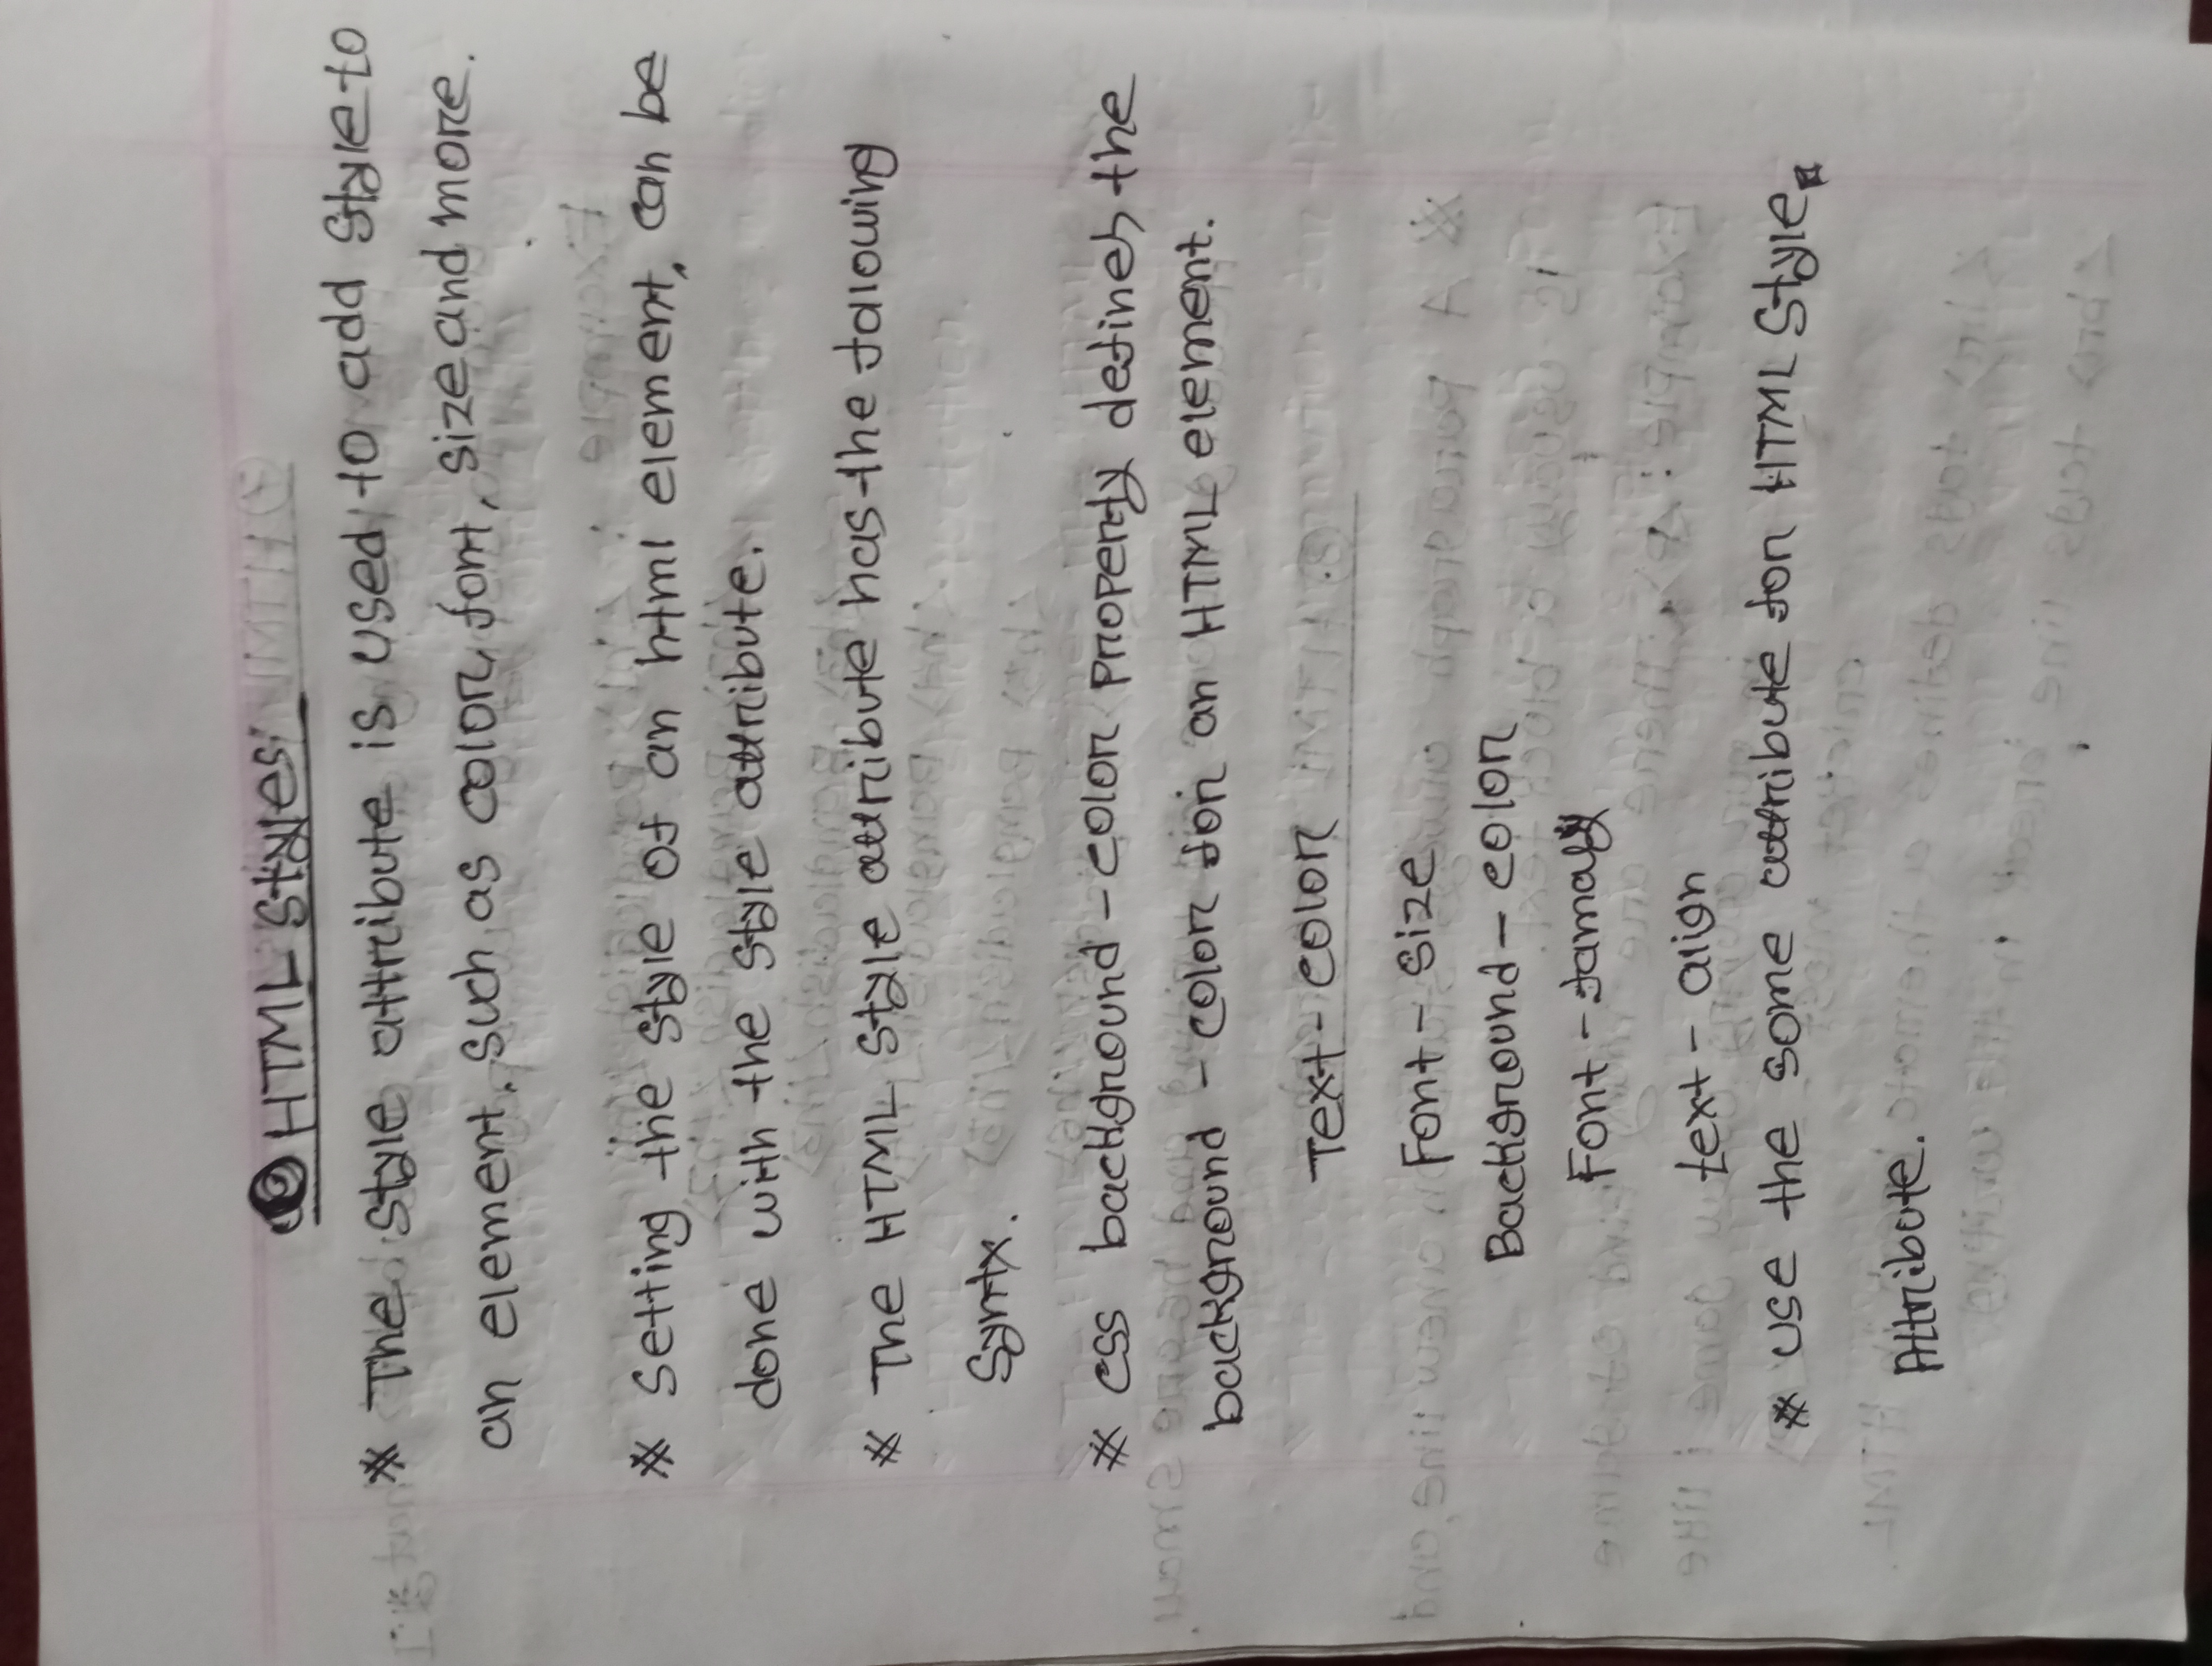 HTML Styles:
* The style attribute is used to add style to
an element. such as color, font, size and more.
* Setting the style of an html element, can be
done with the style attribute.
* The HTML style attribute has the falowing
Syntx.
* css background - color property defines the
background - color for an HTML element.
Text - color
Font - size
Background - color
Font - famaly
text - align
* use the some attribute for HTML Style.
Attribute.